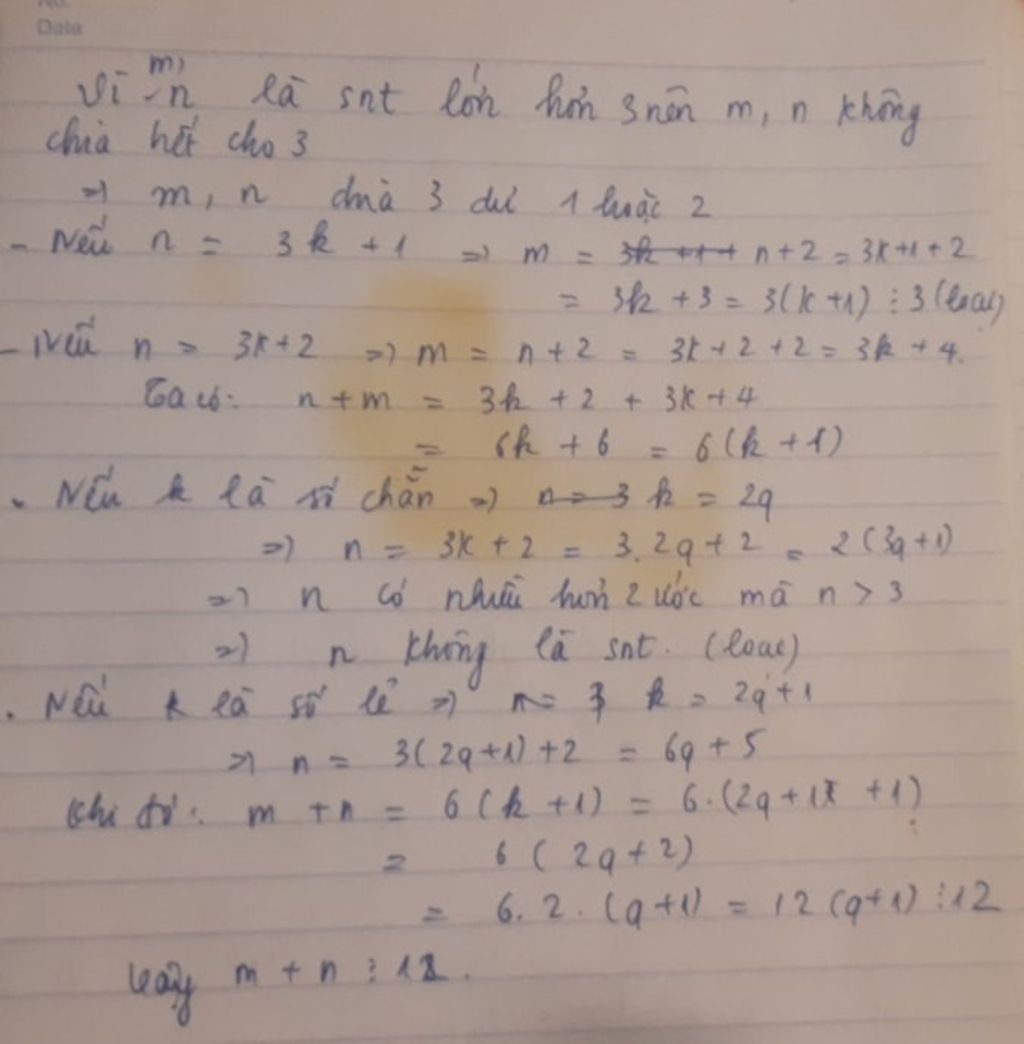 No.
Date
Vì m, n là snt lớn hơn 3 nên m, n không
chia hết cho 3
=> m, n chia 3 dư 1 hoặc 2
- Nếu n = 3k + 1 => m = n + 2 = 3k + 1 + 2
= 3k + 3 = 3(k+1) ⋮ 3 (loại)
- Nếu n = 3k+2 => m = n + 2 = 3k + 2 + 2 = 3k + 4.
Ta có: n + m = 3k + 2 + 3k + 4
= 6k + 6 = 6(k + 1)
. Nếu k là số chẵn => k = 2q
=> n = 3k + 2 = 3.2q + 2 = 2(3q+1)
=> n có nhiều hơn 2 ước mà n > 3
=> n không là snt. (loại)
. Nếu k là số lẻ => k = 2q + 1
=> n = 3(2q+1) + 2 = 6q + 5
Khi đó: m + n = 6(k + 1) = 6.(2q + 1 + 1)
= 6(2q + 2)
= 6.2.(q+1) = 12(q+1) ⋮ 12
Vậy m + n ⋮ 12.